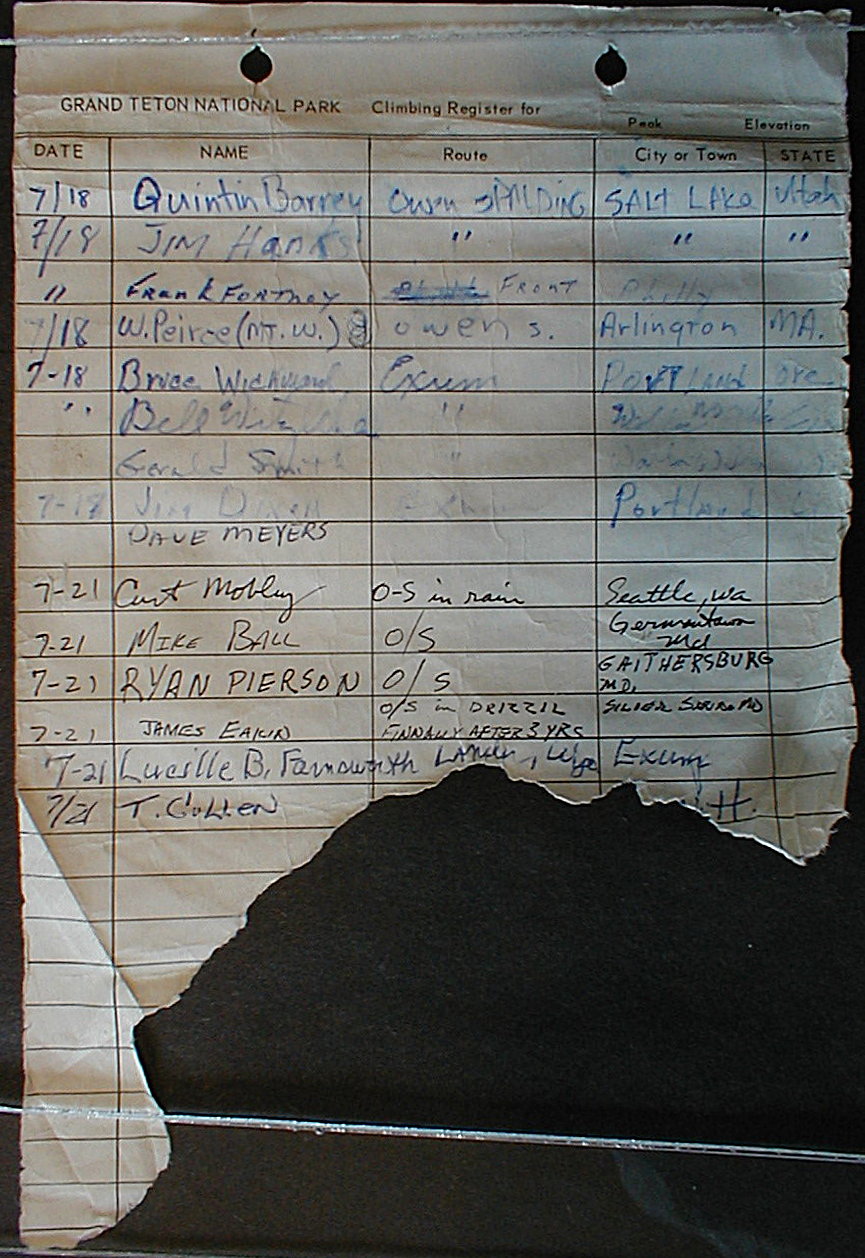 GRAND TETON NATIONAL PARK Climbing Register for
Peak Elevation
DATE NAME Route City or Town STATE
7/18 Quintin Barney Owen SPALDING SALT LAKe Utah
7/18 JIM Hanks " " "
" Frank FORTNEY FRONT Philly
7/18 W. Peirce (MT. W.) Owen S. Arlington MA.
7-18 Bruce Exum PORTLand Ore.
" Bill "
Gerald Smith "
7-17 Jim Portland
DAVE MEYERS
7-21 Curt Mobley O-S in rain Seattle, Wa
7-21 MIKE BALL O/S Germantown Md
7-21 RYAN PIERSON O/S GAITHERSBURG MD.
7-21 JAMES EAKIN O/S in DRIZZIL FINNALLY AFTER 3 YRS SILVER SPRING MD
7-21 Lucille B. Farnsworth Lander, Wyo Exum
7/21 T. CULLEN H.